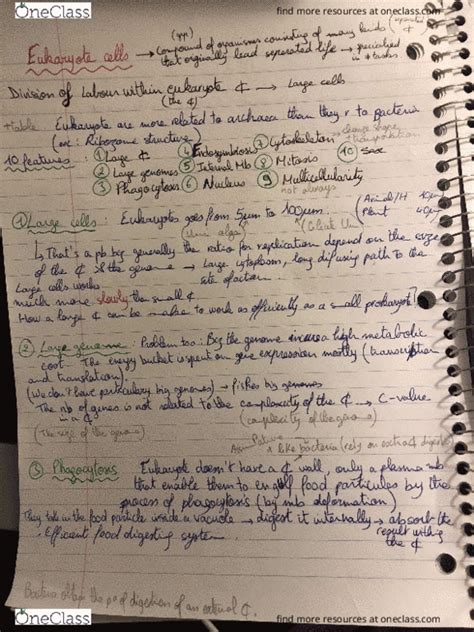 OneClass
find more resources at oneclass.com
Eukaryote cells → compound of organisms consisting of many kinds
that originally lead seperated life → specialised
in # tasks
Division of Labour within eukaryote ¢ → Large cells
(the ¢)
Eukaryote are more related to archaea than they r to bacteria
(ex: Ribozome structure)
10 features: ① Large ¢ ④ Endosymbiosis ⑦ Cytoskeleton ⑩ Sex
② Large genomes ⑤ Internal Mb ⑧ Mitosis
③ Phagocytosis ⑥ Nucleus ⑨ Multicellularity
not always
① Large cells: Eukaryotes goes from 5µm to 100µm. (Animal/H 10µm
(Uni algo) Plant 40µm
↳ That's a pb bcz generally the ratio for replication depend on the size
of the ¢ & the genome → Large cytoplasm, long diffusing path to the
site of action.
Large cells works
much more slowly than small ¢
How a large ¢ can be make to work as efficiently as a small prokaryote?
② Large genome: Problem too: Big the genome high metabolic
cost – The energy bucket is spent on gene expression mostly (transcription
and translation).
(We don't have particulary big genomes) → fishes big genomes
The nb of genes is not related to the complexity of the ¢ → C-value
in a ¢
(The size of the genome) (complexity of the genome)
≠ like bacteria (rely on ext ¢ digestion)
③ Phagocytosis Eukaryote doesn't have a ¢ wall, only a plasma mb
that enable them to engulf food particules by the
process of phagocytosis (by mb deformation)
They take in the food particle inside a vacuole → digest it internally → absorb the
result within
the ¢
• Efficent food digesting system
of digestion of an external ¢.
OneClass
find more resources at oneclass.com